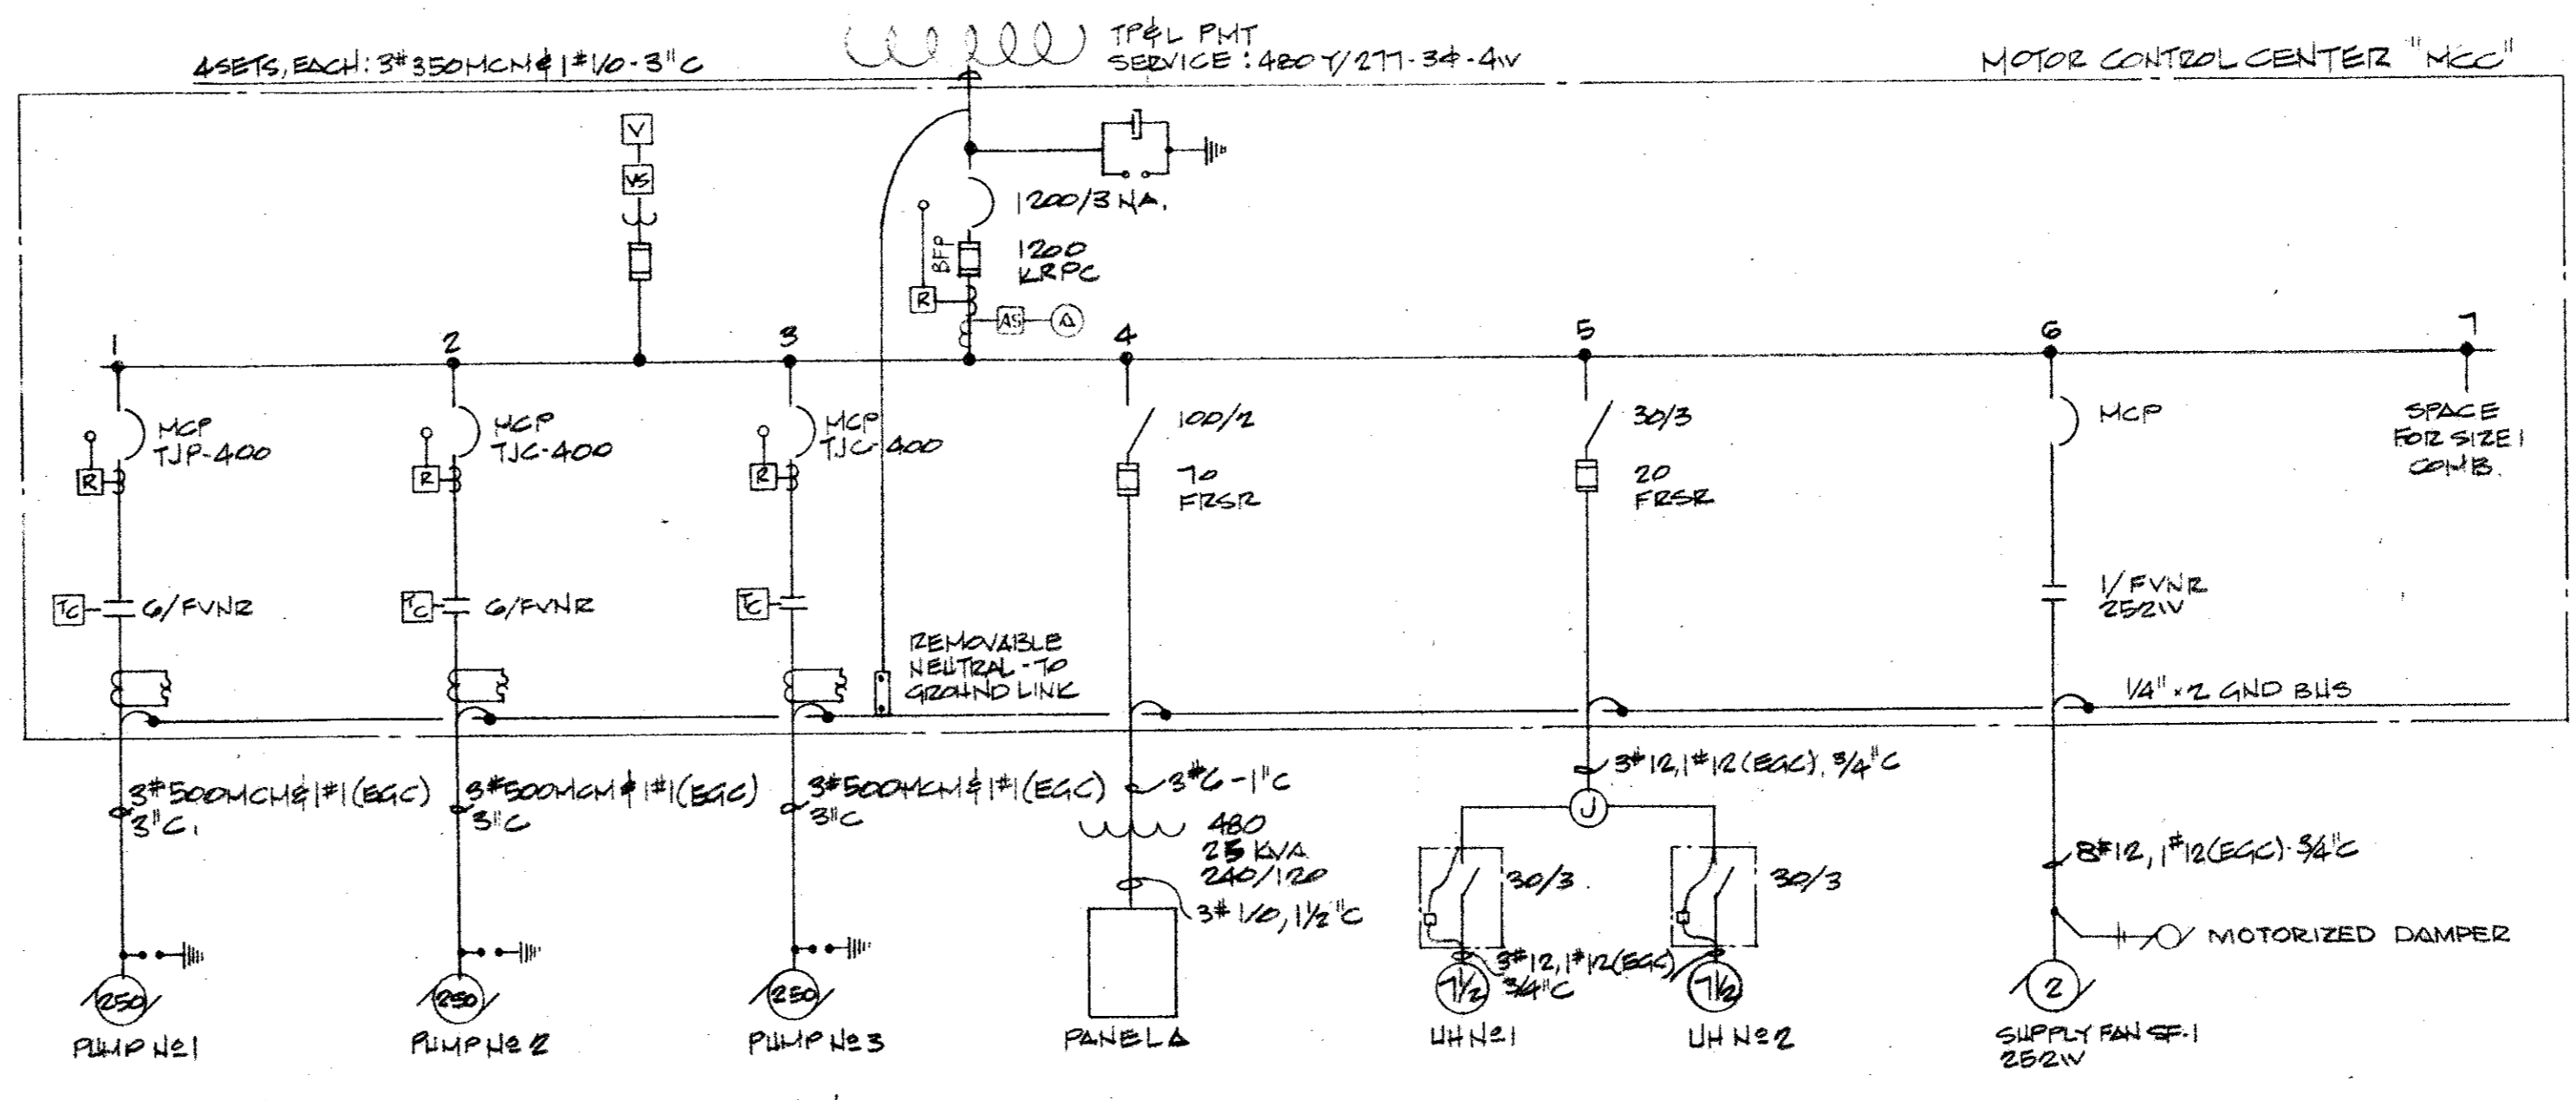 4SETS, EACH: 3#350MCM & 1#1/0-3"C
TP&L PMT
SERVICE: 480Y/277-3φ-4W
MOTOR CONTROL CENTER "MCC"
V
VS
1200/3 NA.
BFP
1200
KRPC
R
AS
A
1
2
3
4
5
6
7
MCP
TJP-400
R
MCP
TJC-400
R
MCP
TJC-400
R
100/2
70
FRSR
30/3
20
FRSR
MCP
SPACE
FOR SIZE 1
COMB.
TC
6/FVNR
TC
6/FVNR
TC
1/FVNR
252W
REMOVABLE
NEUTRAL-TO
GROUND LINK
1/4" x 2 GND BUS
3#500MCM & 1#1 (EGC)
3"C.
3#500MCM & 1#1 (EGC)
3"C
3#500MCM & 1#1 (EGC)
3"C
3#6-1"C
480
25 KVA
240/120
3#1/0, 1½"C
3#12, 1#12 (EGC), 3/4"C
J
30/3
30/3
3#12, 1#12 (EGC)
3/4"C
8#12, 1#12 (EGC)-3/4"C
MOTORIZED DAMPER
250
250
250
7½
7½
2
PUMP Nº1
PUMP Nº2
PUMP Nº3
PANEL A
UH Nº1
UH Nº2
SUPPLY FAN SF-1
252W